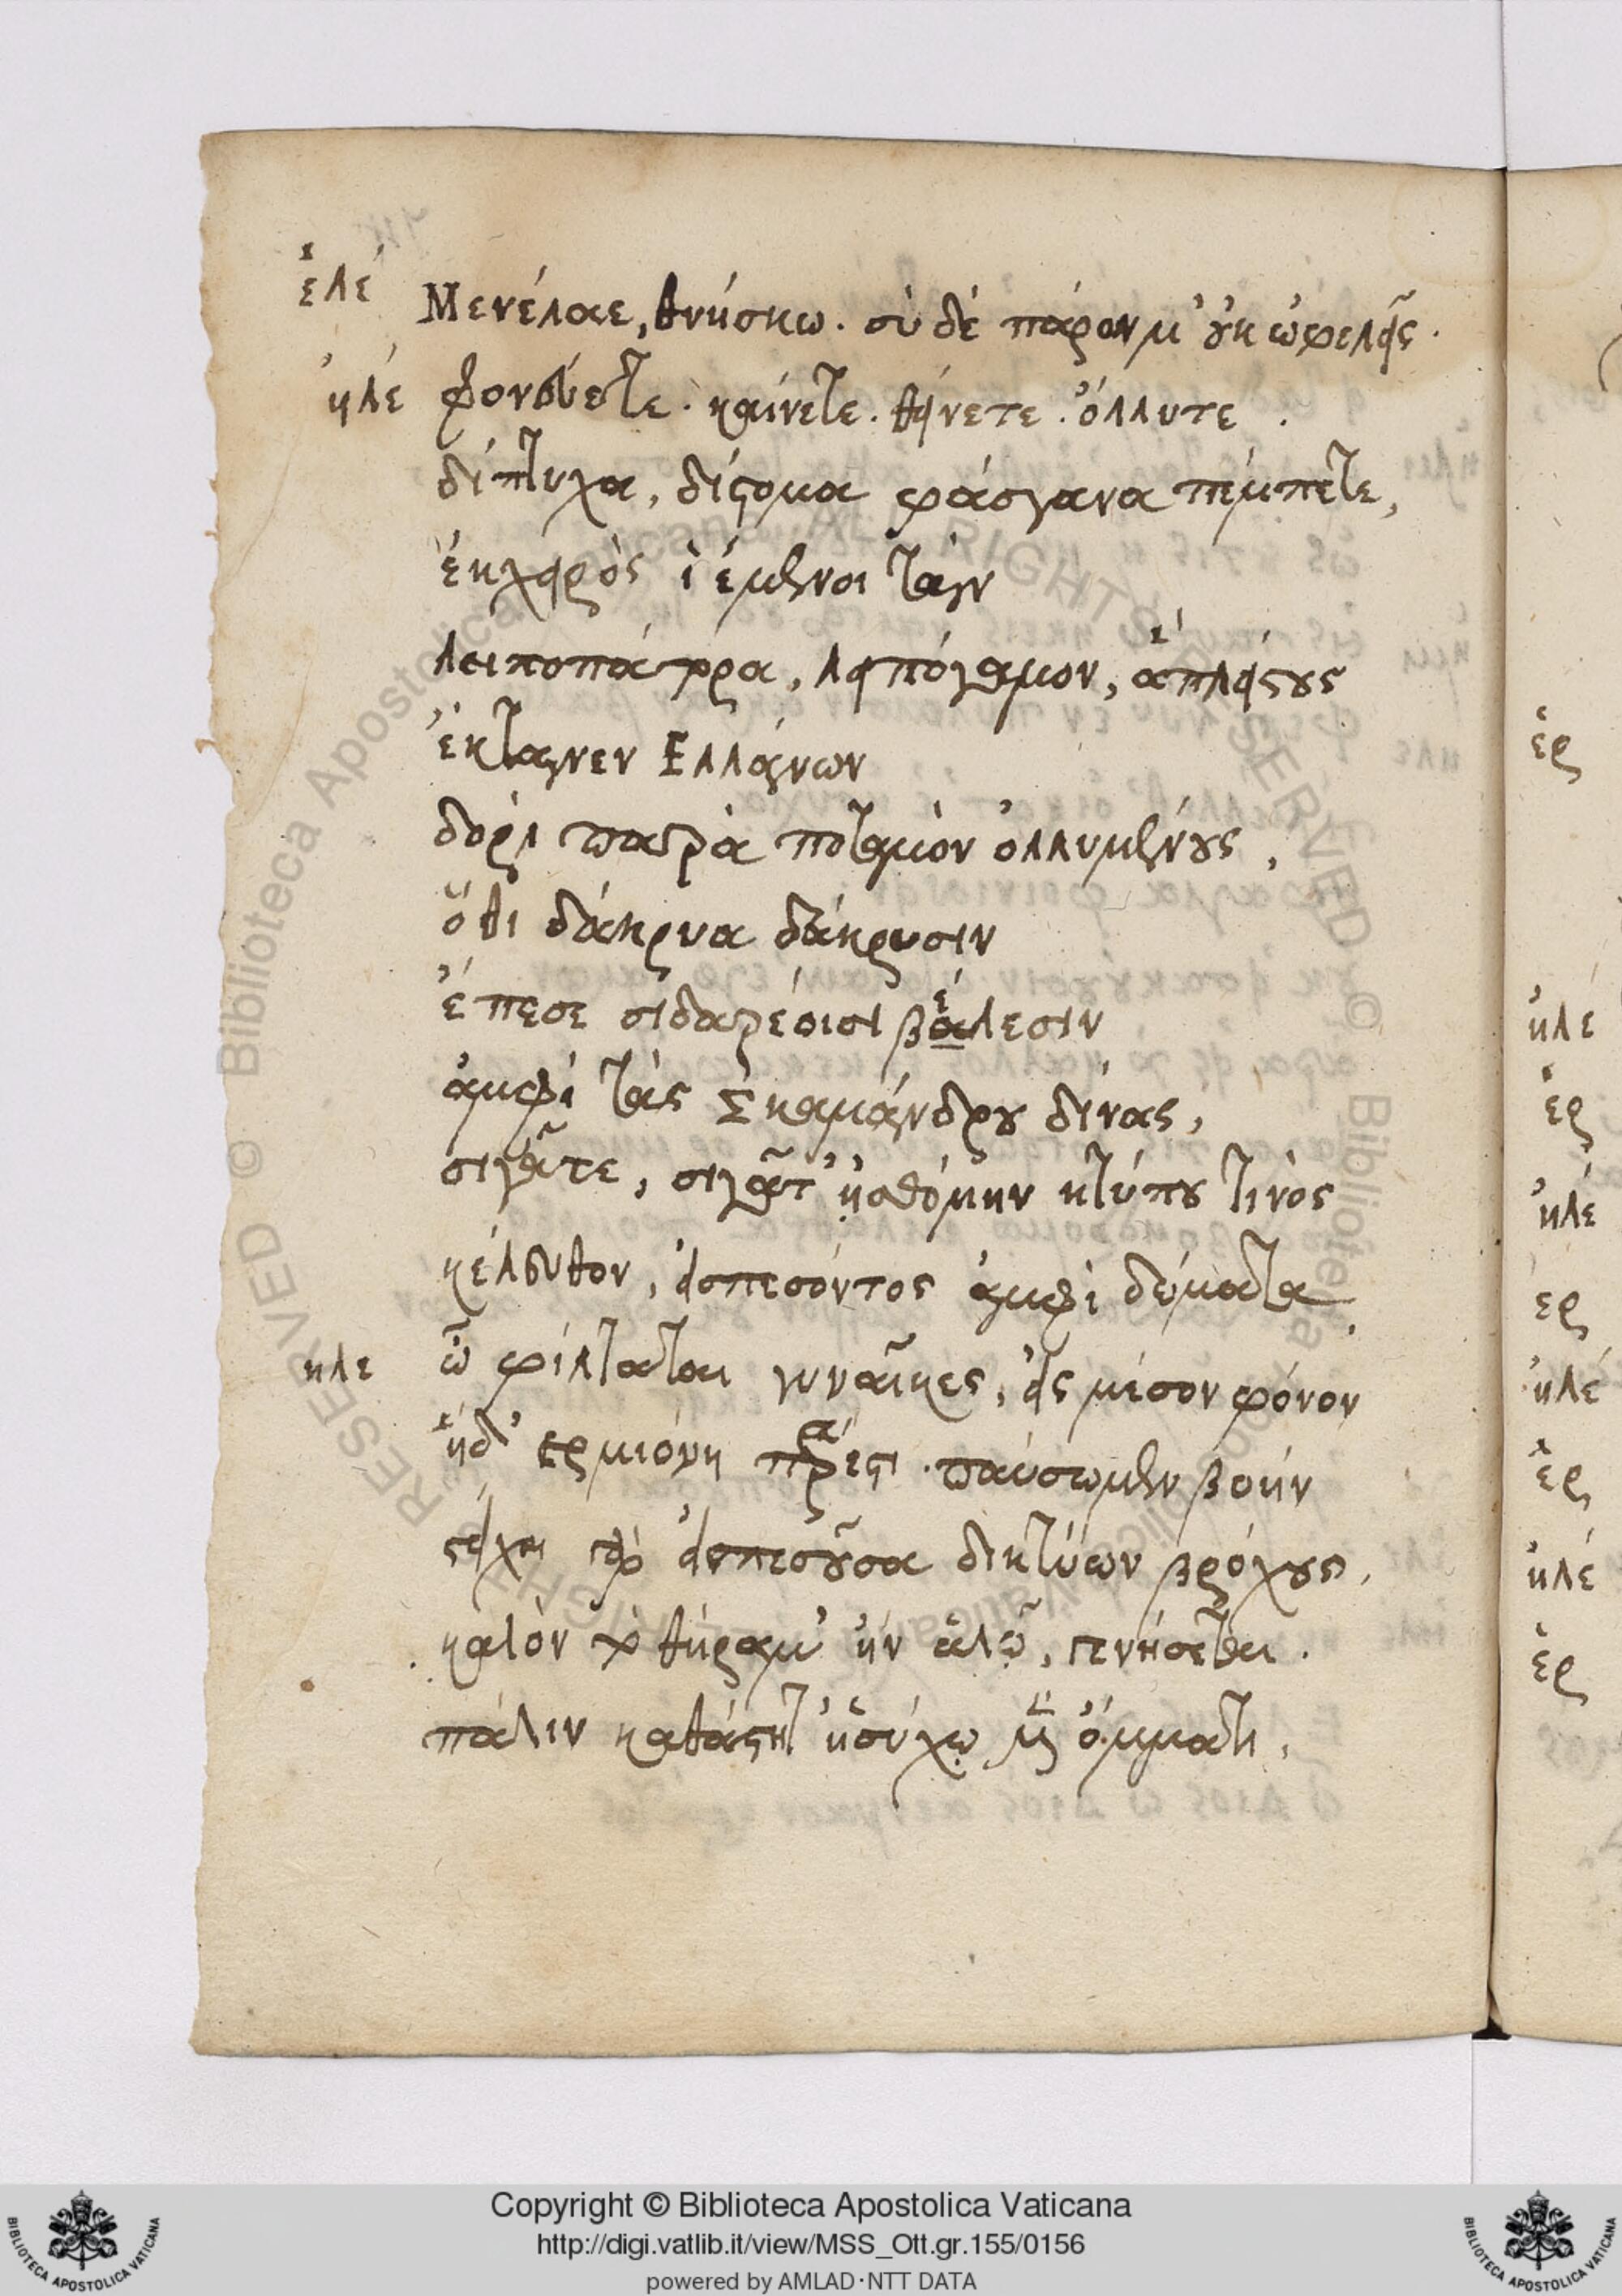 ἑλέ Μενέλαε, θνήσκω. σὺ δὲ παρὸν μ' οὐκ ὠφελεῖς.
ἠλέ φονεύετε. καίνετε. θείνετε. ὄλλυτε.
δίπτυχα, δίστομα φάσγανα πέμπετε,
ἐκ χειρὸς ἱέμενοι τὰν
λειποπάτρα, λειπόγαμον, ἃ πλείστους
ἔκτανεν Ἑλλάνων
δορὶ παρὰ ποταμὸν ὀλλυμένους,
ὅθι δάκρυα δάκρυσιν
ἔπεσε σιδαρέοισι βάλεσιν
ἀμφὶ τὰς Σκαμάνδρου δίνας,
σιγᾶτε, σιγᾶτ' ᾐσθόμην κτύπου τινὸς
κέλευθον, εἰσπεσόντος ἀμφὶ δώματα.
ηλε ὦ φίλταται γυναῖκες, εἰς μέσον φόνον
ἥδ' ἑρμιόνη πάρεστι. παύσωμεν βοήν
στείχει γὰρ εἰσπεσοῦσα δικτύων βρόχους,
καλὸν τὸ θήραμ' ἢν ἁλῷ, γενήσεται.
πάλιν κατάστηθ' ἡσύχῳ μὲν ὄμματι,
ἑρ
ἠλέ
ἑρ
ἠλέ
ἑρ
ἠλέ
ἑρ
ἠλέ
ἑρ
Copyright © Biblioteca Apostolica Vaticana
http://digi.vatlib.it/view/MSS_Ott.gr.155/0156
powered by AMLAD·NTT DATA